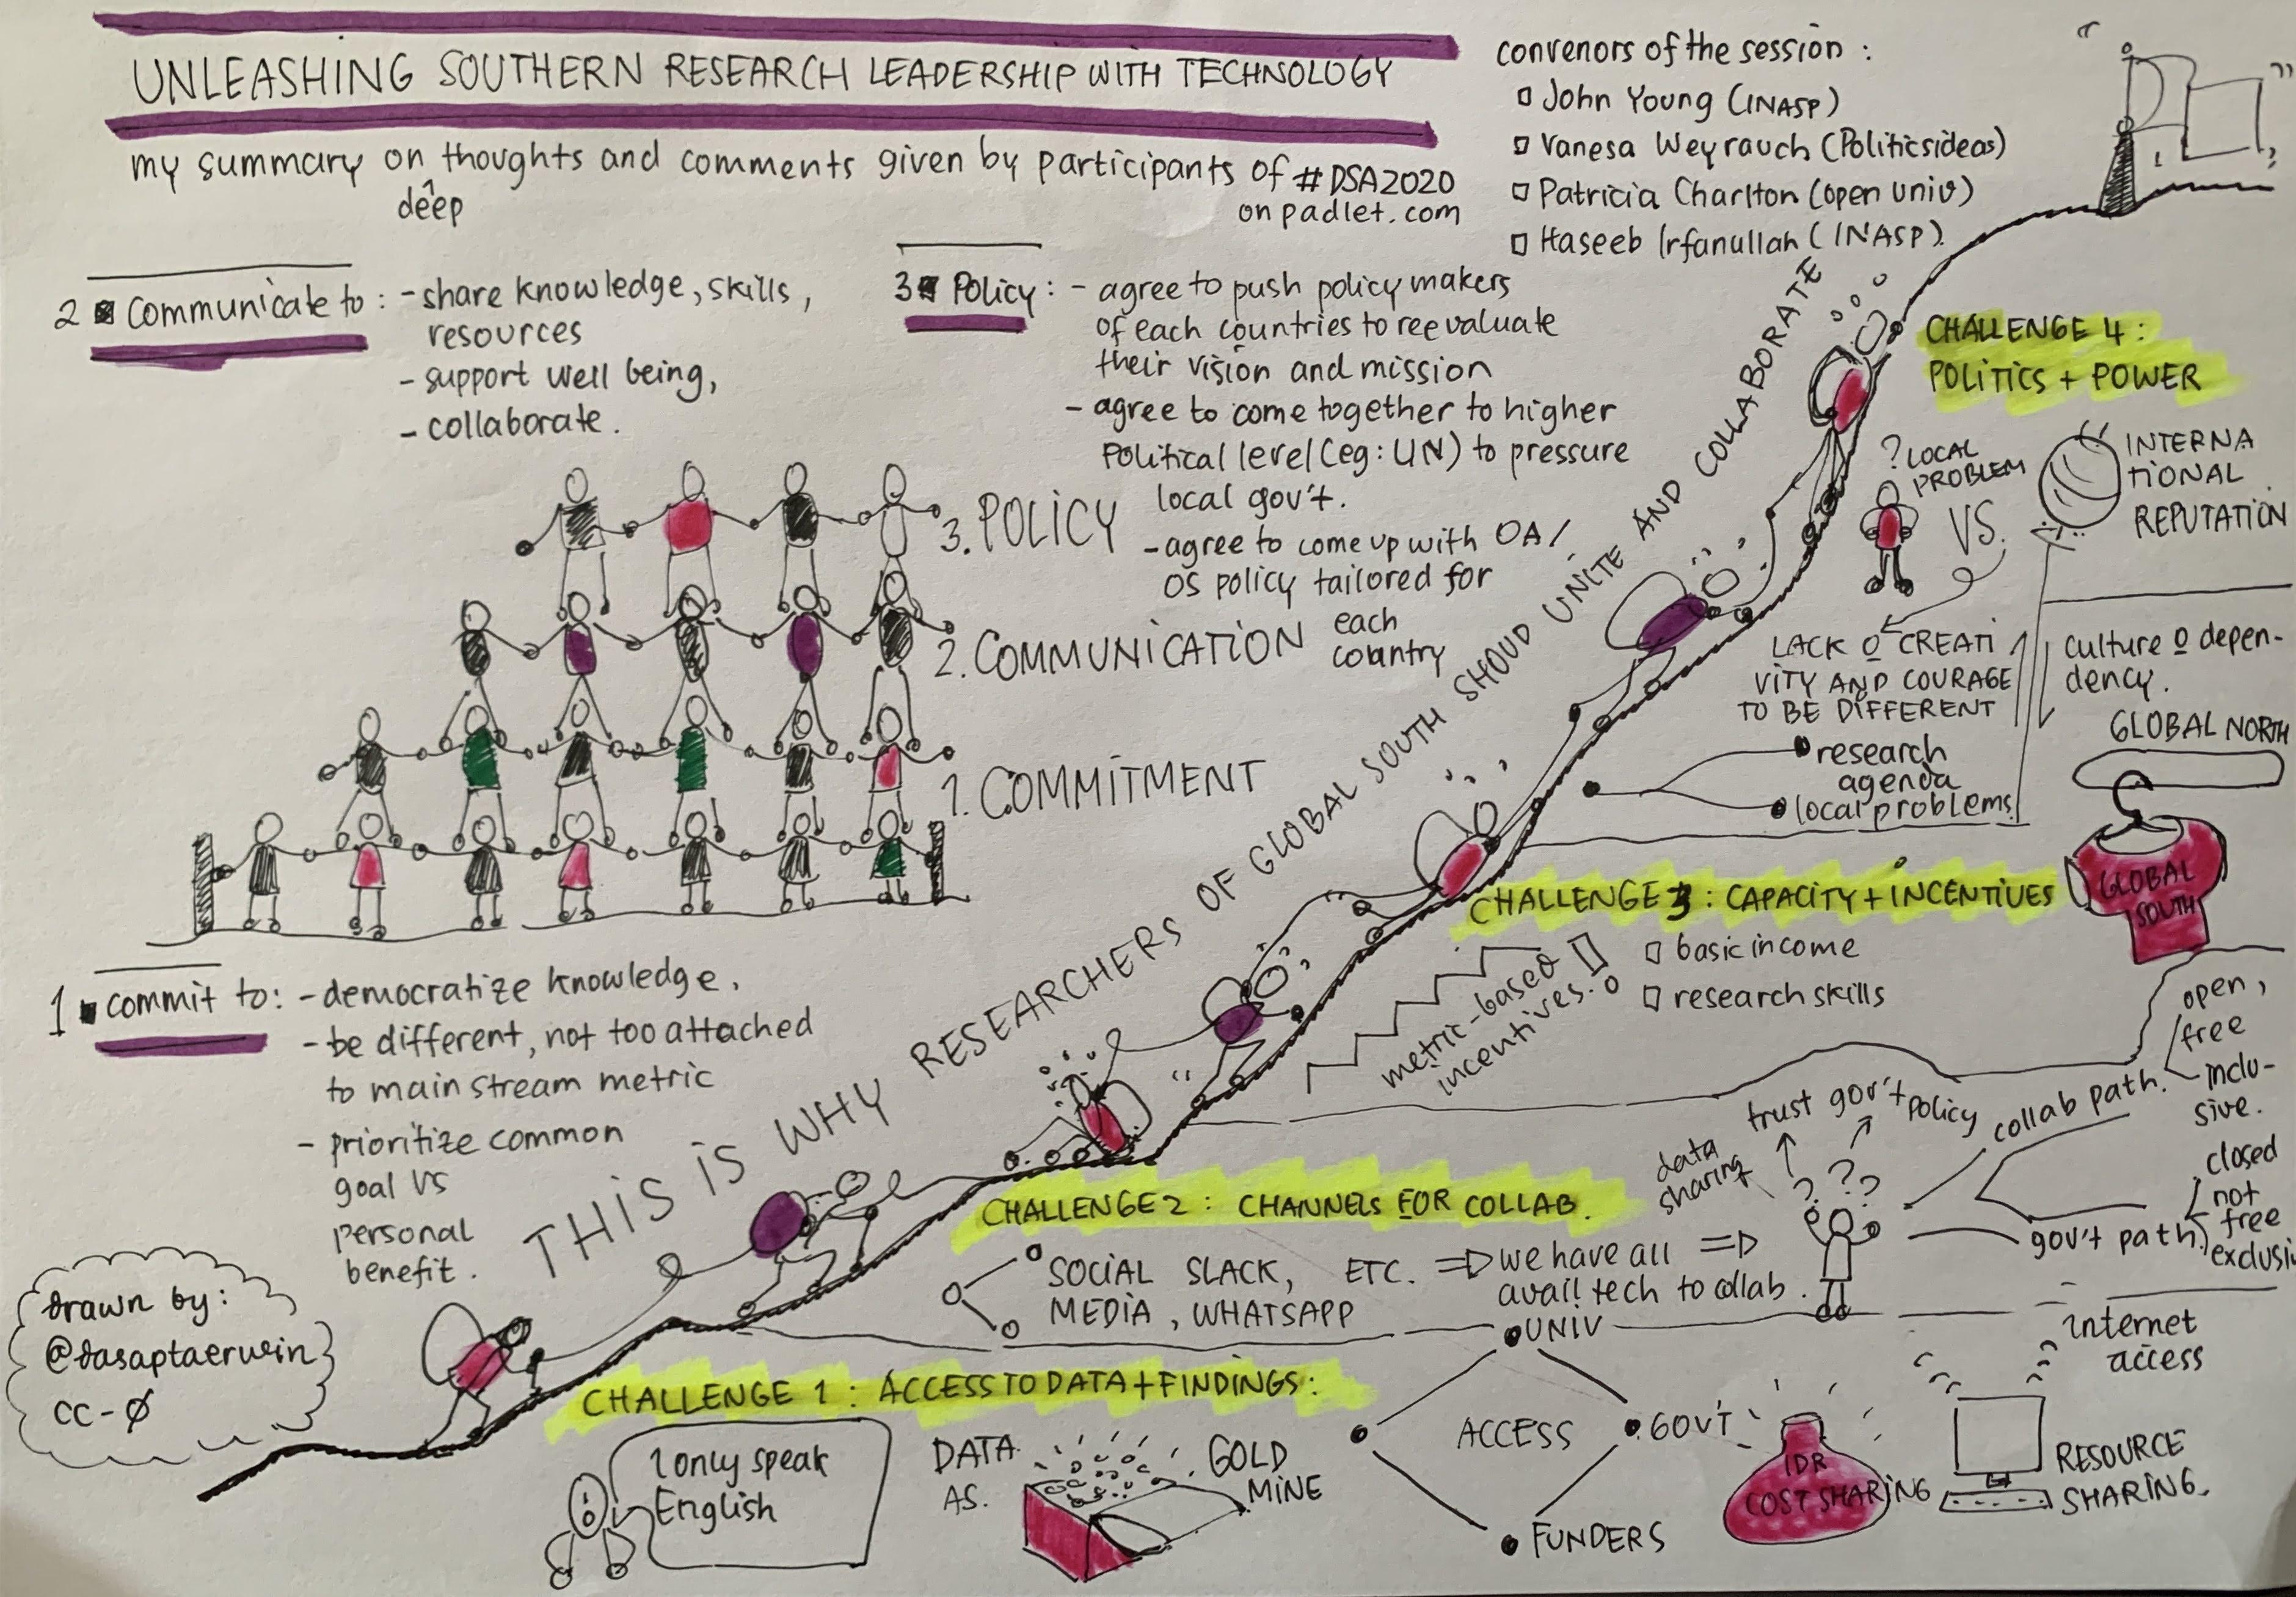 UNLEASHING SOUTHERN RESEARCH LEADERSHIP WITH TECHNOLOGY
my summary on thoughts and comments given by participants of #DSA2020
deep
on padlet.com
convenors of the session :
John Young (INASP)
Vanesa Weyrauch (Politicsideas)
Patricia Charlton (open univ)
Haseeb Irfanullah (INASP)
2 communicate to : - share knowledge, skills,
resources
- support well being,
- collaborate.
3 Policy : - agree to push policy makers
of each countries to reevaluate
their vision and mission
- agree to come together to higher
Political level (eg: UN) to pressure
local gov't.
- agree to come up with OA/
OS policy tailored for
each
country
3. POLICY
2. COMMUNICATION
1. COMMITMENT
1 commit to: - democratize knowledge,
- be different, not too attached
to main stream metric
- prioritize common
goal vs
personal
benefit.
THIS IS WHY RESEARCHERS OF GLOBAL SOUTH SHOUD UNITE AND COLLABORATE
drawn by:
@dasaptaerwin
CC-Ø
CHALLENGE 4 :
POLITICS + POWER
? LOCAL
PROBLEM
VS.
INTERNA
TIONAL
REPUTATION
LACK O CREATI
VITY AND COURAGE
TO BE DIFFERENT
culture o depen-
dency.
research
agenda
local problems
GLOBAL NORTH
GLOBAL
SOUTH
CHALLENGE 3 : CAPACITY + INCENTIVES
metric-based
incentives.
basic income
research skills
CHALLENGE 2 : CHANNELS FOR COLLAB.
SOCIAL SLACK, ETC. => we have all =>
MEDIA, WHATSAPP avail tech to collab.
data
sharing
trust gov't policy
? ? ? ?
collab path.
open,
free
inclu-
sive.
gov't path
closed
not
free
exclusi
CHALLENGE 1 : ACCESS TO DATA + FINDINGS :
I only speak
English
DATA
AS.
GOLD
MINE
UNIV
ACCESS
GOV'T
FUNDERS
IDR
COST SHARING
internet
access
RESOURCE
SHARING.